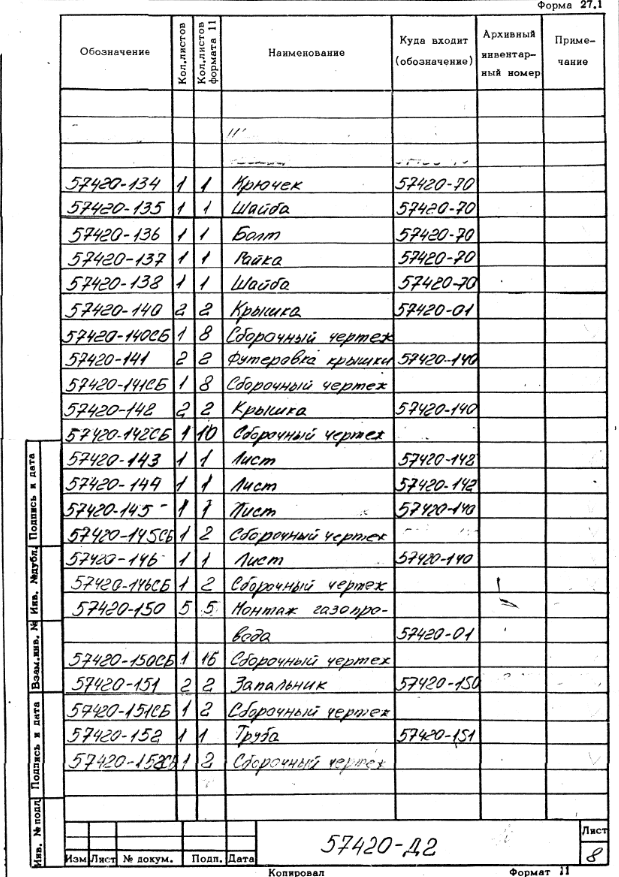 Форма 27.1
Обозначение Кол.листов Кол.листов формата 11 Наименование Куда входит (обозначение) Архивный инвентарный номер Примечание
57420-134 1 1 Крючек 57420-70
57420-135 1 1 Шайба 57420-70
57420-136 1 1 Болт 57420-70
57420-137 1 1 Гайка 57420-70
57420-138 1 1 Шайба 57420-70
57420-140 2 2 Крышка 57420-01
57420-140СБ 1 8 Сборочный чертеж
57420-141 2 2 Футеровка крышки 57420-140
57420-141СБ 1 8 Сборочный чертеж
57420-142 2 2 Крышка 57420-140
57420-142СБ 1 10 Сборочный чертеж
57420-143 1 1 Лист 57420-142
57420-144 1 1 Лист 57420-142
57420-145 1 1 Лист 57420-140
57420-145СБ 1 2 Сборочный чертеж
57420-146 1 1 Лист 57420-140
57420-146СБ 1 2 Сборочный чертеж
57420-150 5 5 Монтаж газопро-
вода 57420-01
57420-150СБ 1 16 Сборочный чертеж
57420-151 2 2 Запальник 57420-150
57420-151СБ 1 2 Сборочный чертеж
57420-152 1 1 Труба 57420-151
57420-152СБ 1 2 Сборочный чертеж
Инв. № подл. Подпись и дата Взам.инв. № Инв. №дубл. Подпись и дата
57420-Д2
Лист
8
Изм Лист № докум. Подп. Дата
Копировал Формат 11